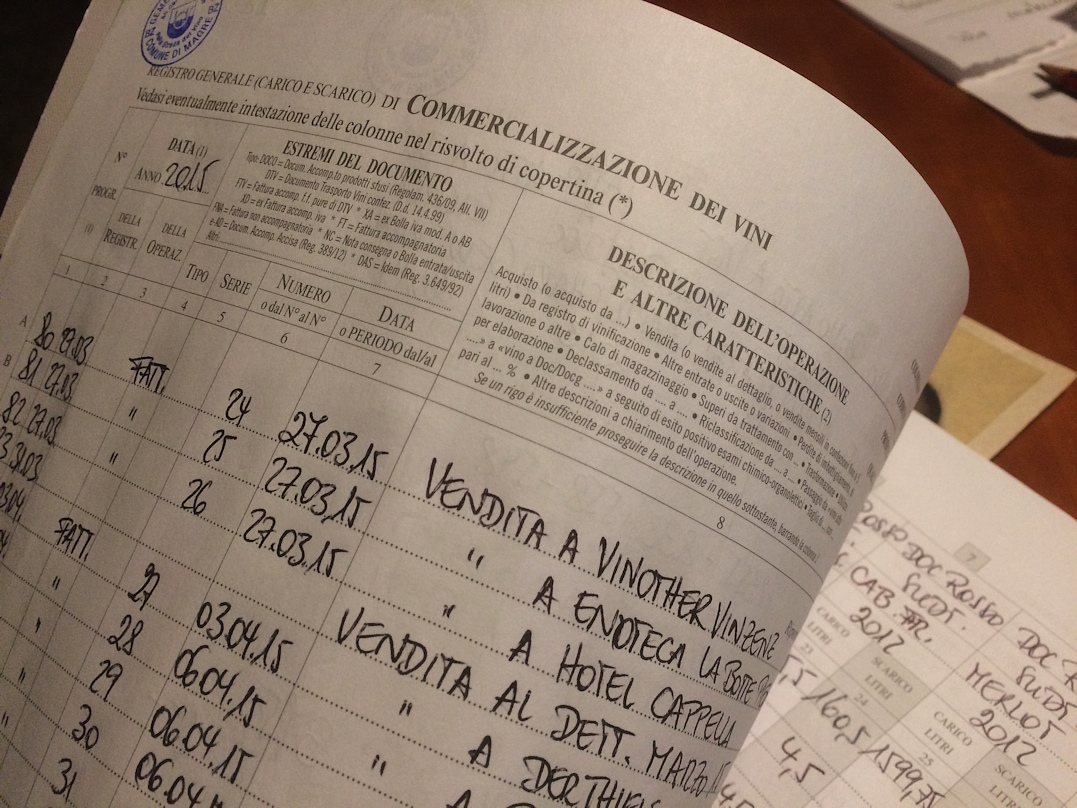 COMUNE DI MAGRE'
REGISTRO GENERALE (CARICO E SCARICO) DI COMMERCIALIZZAZIONE DEI VINI
Vedasi eventualmente intestazione delle colonne nel risvolto di copertina (*)
N°
PROGR.
(1)
DATA (1)
ANNO 2015
DELLA REGISTR.
DELLA OPERAZ.
ESTREMI DEL DOCUMENTO
Tipo: DOCO = Docum. Accomp.to prodotti sfusi (Regolam. 436/09, All. VII)
DTV = Documento Trasporto Vini confez. (D.d. 14.4.99)
FTV = Fattura accomp. f.f. pure di DTV * XA = ex Bolla iva mod. A o AB
XD = ex Fattura accomp. iva * FT = Fattura accompagnatoria
FNA = Fattura non accompagnatoria * NC = Nota consegna o Bolla entrata/uscita
e-AD = Docum. Accomp. Accisa (Reg. 389/12) * DAS = Idem (Reg. 3.649/92)
Altri:
TIPO
SERIE
NUMERO
o dal N° al N°
DATA
o PERIODO dal/al
DESCRIZIONE DELL'OPERAZIONE
E ALTRE CARATTERISTICHE (2)
Acquisto (o acquisto da ...) • Vendita (o vendite al dettaglio, o vendite mensili in
litri) • Da registro di vinificazione • Altre entrate o uscite o variazioni • Perdite di
lavorazione o altre • Calo di magazzinaggio • Superi da trattamento con ... • Trasformazione
per elaborazione • Declassamento da .... a .... • Riclassificazione da ... a ... • Passaggio da
.... a «vino a Doc/Docg ....» a seguito di esito positivo esami chimico-organolettico • Taglio di
pari al ... % • Altre descrizioni a chiarimento dell'operazione.
Se un rigo è insufficiente proseguire la descrizione in quello sottostante, barrando la colonna
1 2 3 4 5 6 7 8
A 80 27.03 FATT. 24 27.03.15 VENDITA A VINOTHER VINZENZ
B 81 27.03 " 25 27.03.15 " A ENOTECA LA BOTTE
82 27.03 " 26 27.03.15 " A HOTEL CAPPELLA
31.03 VENDITA AL DETT. MARZO
FATT. 27 03.04.15 " A DERTHIE
" 28 06.04.15 " A
" 29 06.04.15
" 30 06.04
" 31
7
ROSSO DOC ROSSO DOC
SUEDT. SUEDT
CAB FR. MERLOT
2012 2012
CARICO LITRI 23
SCARICO LITRI 24
CARICO LITRI 25
SCARICO LITRI
160,5 1599,75
4,5